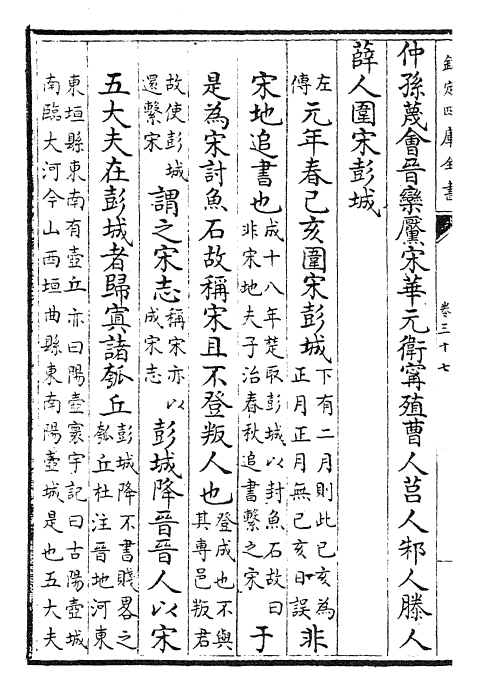 欽定四庫全書
卷三十七
仲孫蔑會晉欒黶宋華元衛寗殖曹人莒人邾人滕人
薛人圍宋彭城
左傳元年春己亥圍宋彭城下有二月則此己亥為正月正月無己亥日誤非
宋地追書也成十八年楚取彭城以封魚石故曰非宋地夫子治春秋追書繫之宋于
是為宋討魚石故稱宋且不登叛人也登成也不與其專邑叛君
故使彭城還繫宋謂之宋志稱宋亦以成宋志彭城降晉晉人以宋
五大夫在彭城者歸寘諸瓠丘彭城降不書賤畧之瓠丘杜注晉地河東
東垣縣東南有壺丘亦曰陽壺寰宇記曰古陽壺城南臨大河今山西垣曲縣東南陽壺城是也五大夫